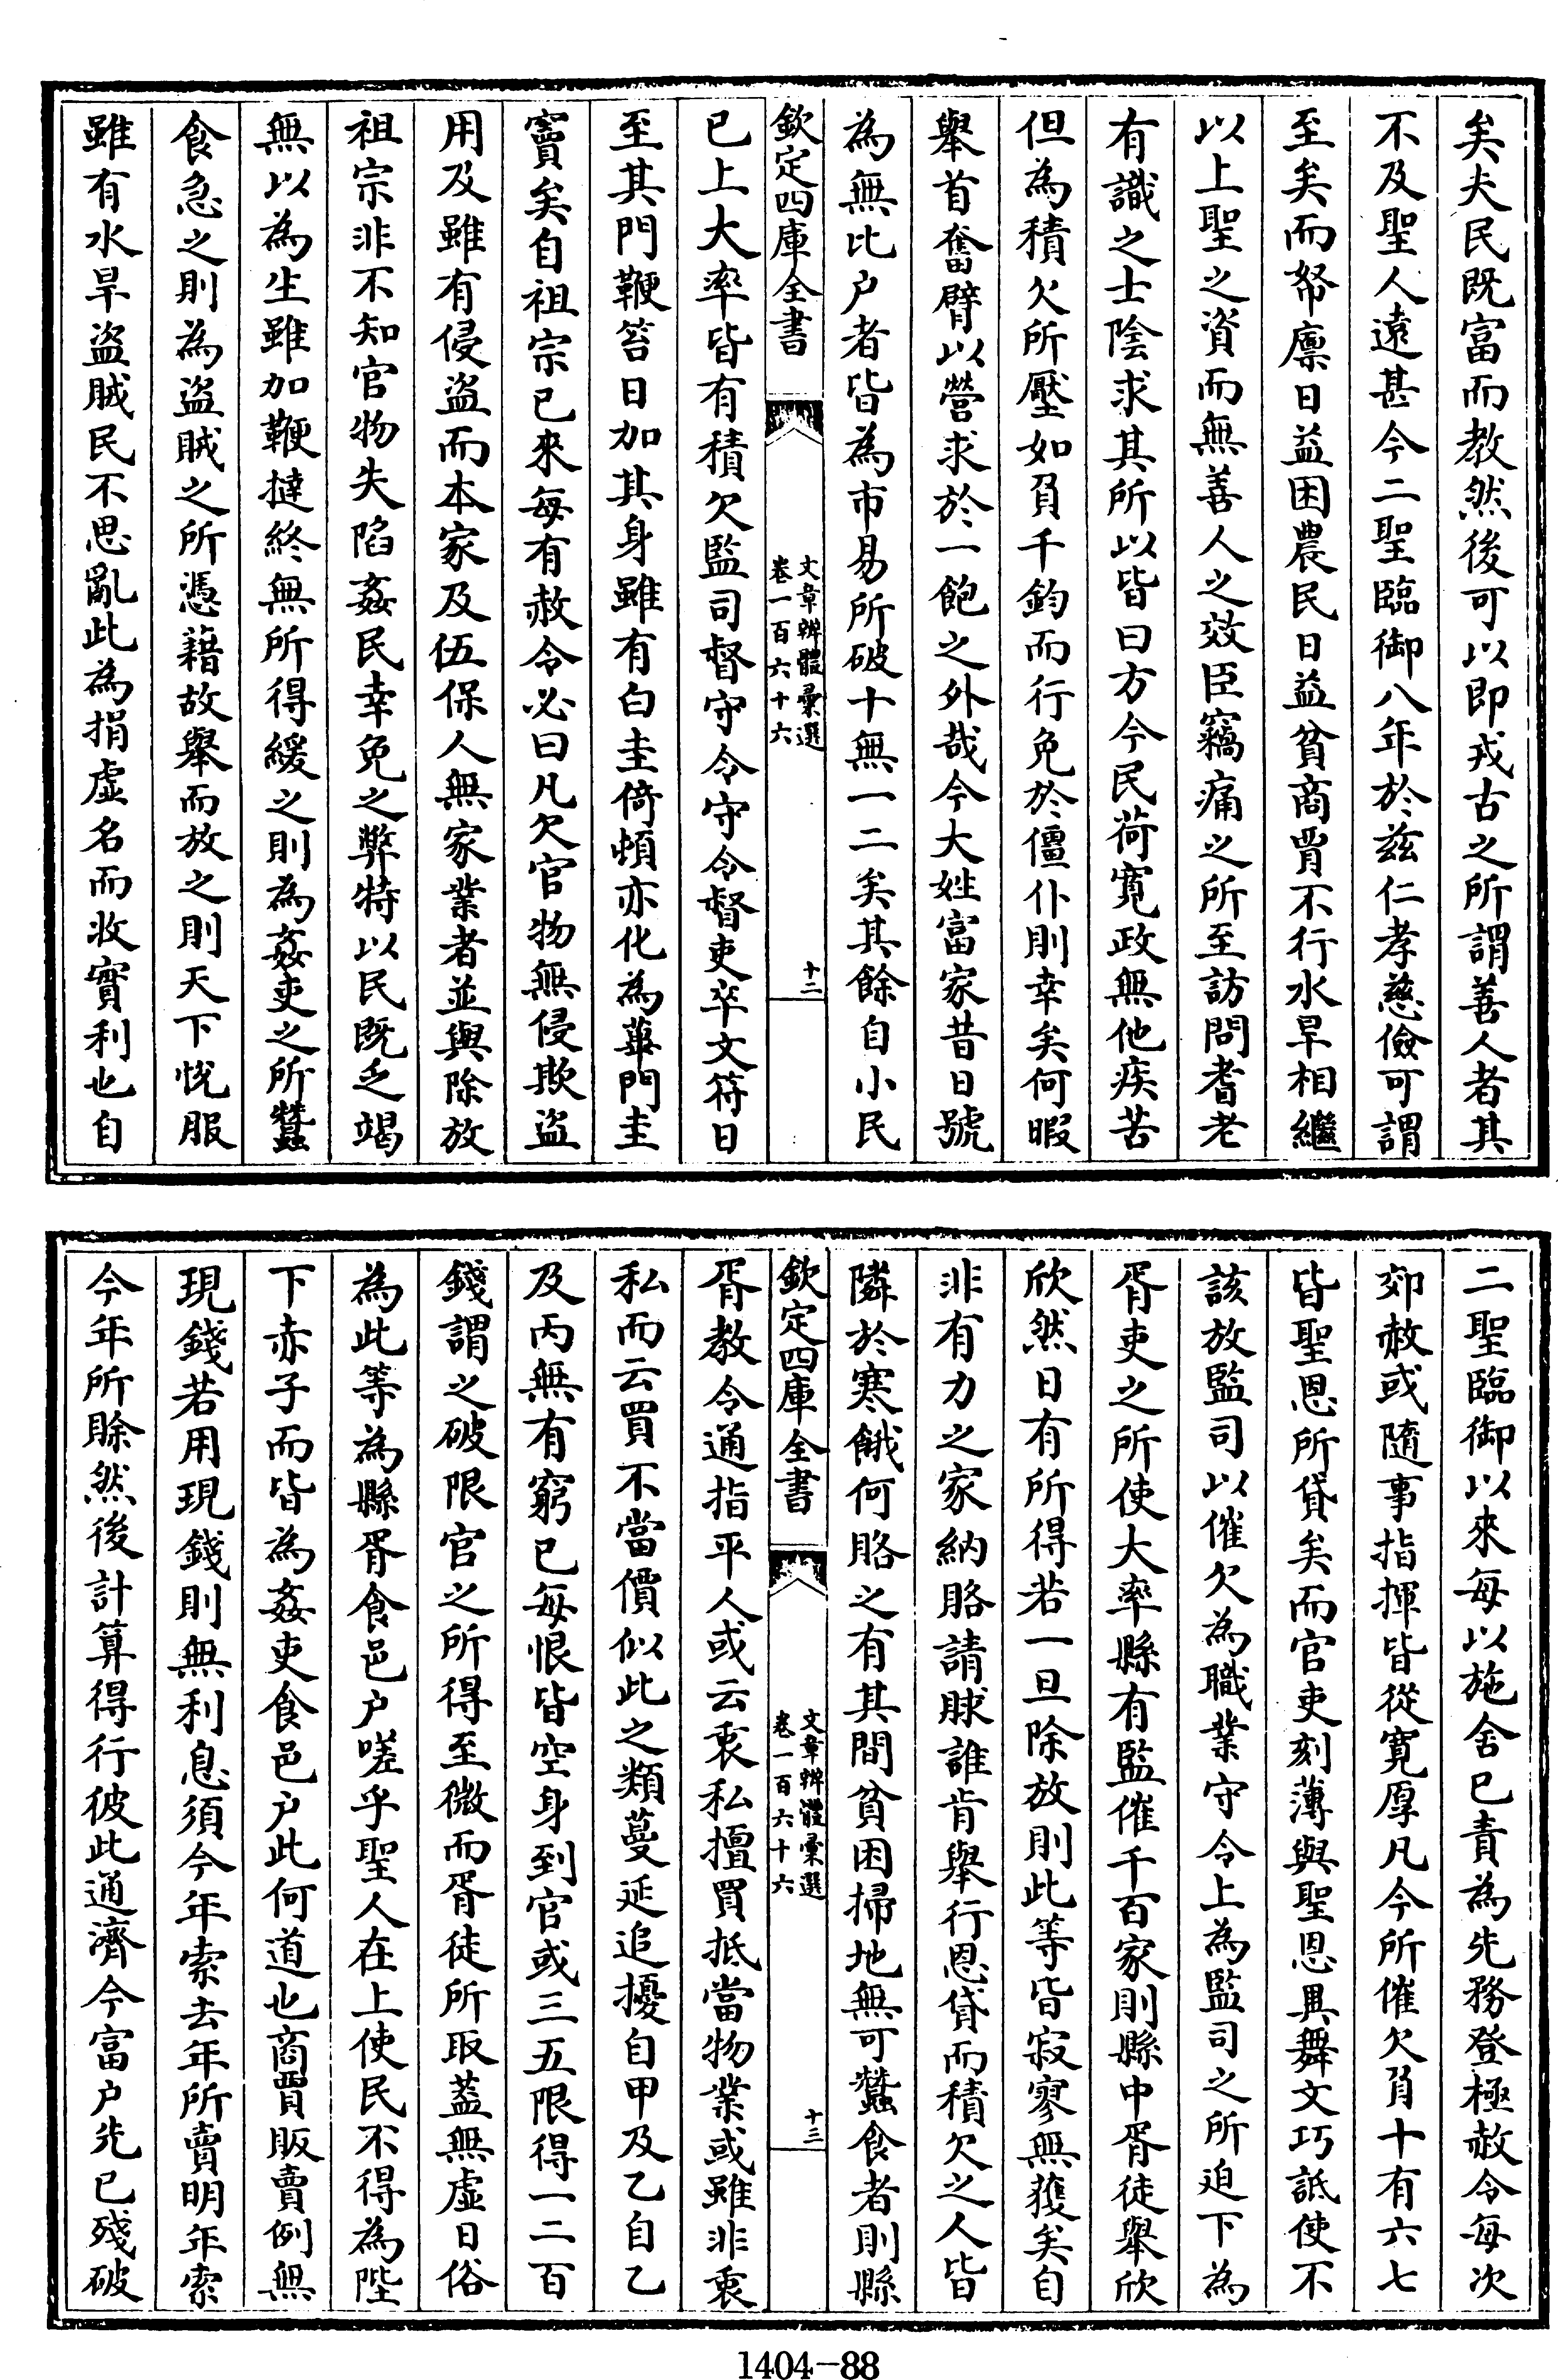 矣夫民既富而教然後可以即戎古之所謂善人者其
不及聖人遠甚今二聖臨御八年於兹仁孝慈儉可謂
至矣而帑廪日益困農民日益貧商賈不行水旱相繼
以上聖之資而無善人之效臣竊痛之所至訪問耆老
有識之士陰求其所以皆曰方今民荷寛政無他疾苦
但為積欠所壓如負千鈞而行免於僵仆則幸矣何暇
舉首奮臂以營求於一飽之外哉今大姓富家昔日號
為無比户者皆為市易所破十無一二矣其餘自小民
欽定四庫全書
文章辨體彙選
卷一百六十六
十二
已上大率皆有積欠監司督守令守令督吏卒文符日
至其門鞭笞日加其身雖有白圭倚頓亦化為蓽門圭
竇矣自祖宗已來每有赦令必曰凡欠官物無侵欺盜
用及雖有侵盜而本家及伍保人無家業者並與除放
祖宗非不知官物失陷姦民幸免之弊特以民既乏竭
無以為生雖加鞭撻終無所得緩之則為姦吏之所蠶
食急之則為盜賊之所憑藉故舉而放之則天下悅服
雖有水旱盜賊民不思亂此為捐虛名而收實利也自
二聖臨御以來每以施舍已責為先務登極赦令每次
郊赦或隨事指揮皆從寛厚凡今所催欠負十有六七
皆聖恩所貸矣而官吏刻薄與聖恩異舞文巧詆使不
該放監司以催欠為職業守令上為監司之所迫下為
胥吏之所使大率縣有監催千百家則縣中胥徒舉欣
欣然日有所得若一旦除放則此等皆寂寥無獲矣自
非有力之家納賂請賕誰肯舉行恩貸而積欠之人皆
隣於寒餓何賂之有其間貧困掃地無可蠶食者則縣
欽定四庫全書
文章辨體彙選
卷一百六十六
十三
胥教令通指平人或云衷私擅買抵當物業或雖非衷
私而云買不當價似此之類蔓延追擾自甲及乙自乙
及丙無有窮已每恨皆空身到官或三五限得一二百
錢謂之破限官之所得至微而胥徒所取蓋無虛日俗
為此等為縣胥食邑户嗟乎聖人在上使民不得為陛
下赤子而皆為姦吏食邑户此何道也商賈販賣例無
現錢若用現錢則無利息須今年索去年所賣明年索
今年所賒然後計算得行彼此通濟今富户先已殘破
1404-88